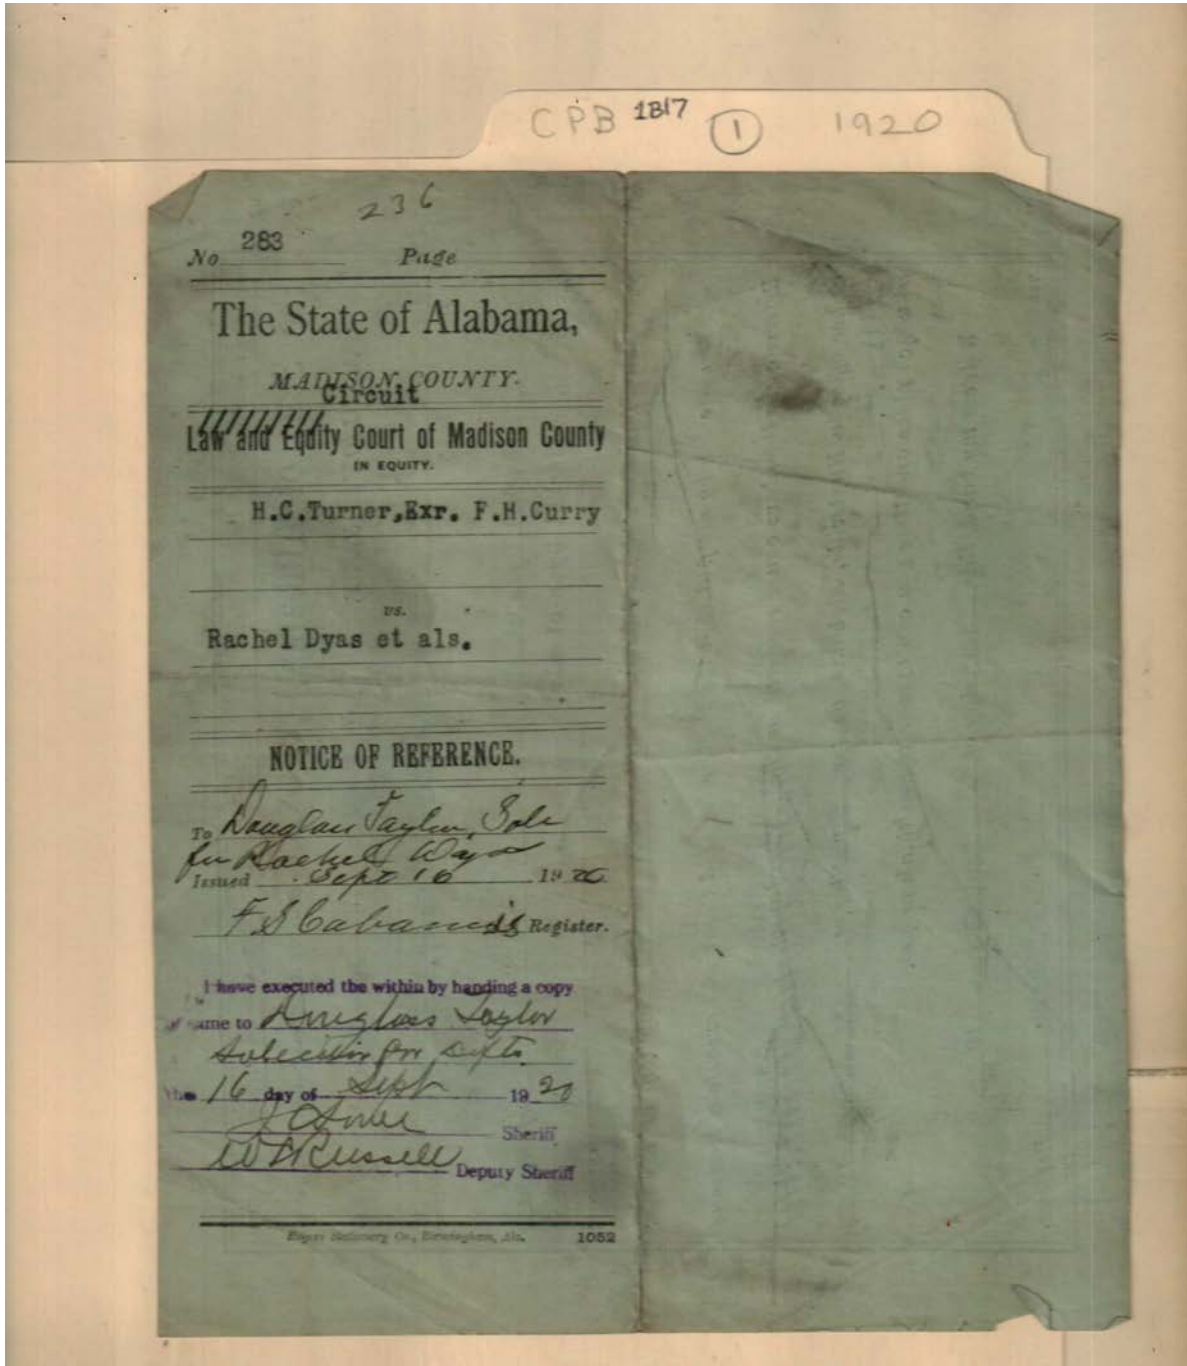 CPB 1817 1 1920
236
No 283 Page
The State of Alabama,
MADISON COUNTY.
Circuit
Law and Equity Court of Madison County
IN EQUITY.
H.C.Turner,Exr. F.H.Curry
vs.
Rachel Dyas et als.
NOTICE OF REFERENCE.
To Douglass Taylor, Sols
for Rachel Dyas
Issued Sept 16 1920
F S Cabaniss Register.
I have executed the within by handing a copy
of same to Douglass Taylor
Solicitor for Defts.
the 16 day of Sept 1920
Sheriff
W Russell Deputy Sheriff
Stationery Co., Birmingham, Ala. 1052